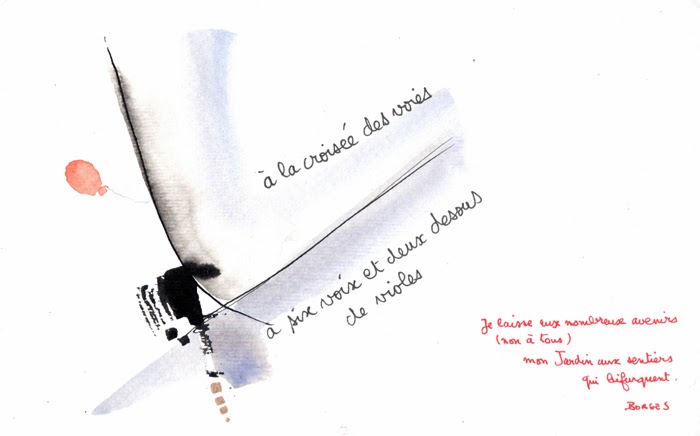 à la croisée des voies
à six voix et deux desous
de violes
Je laisse aux nombreux avenirs
(non à tous)
mon Jardin aux sentiers
qui bifurquent.
BORGES